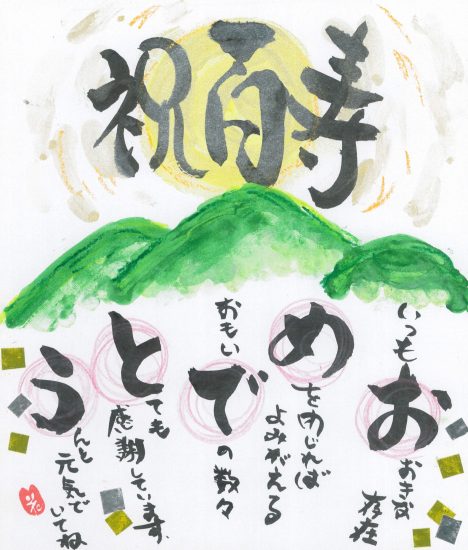 祝百寿
いつも
おおきな
存在
めをとじれば
よみがえる
おもい
での数々
とても
感謝しています。
うんと
元気で
いてね